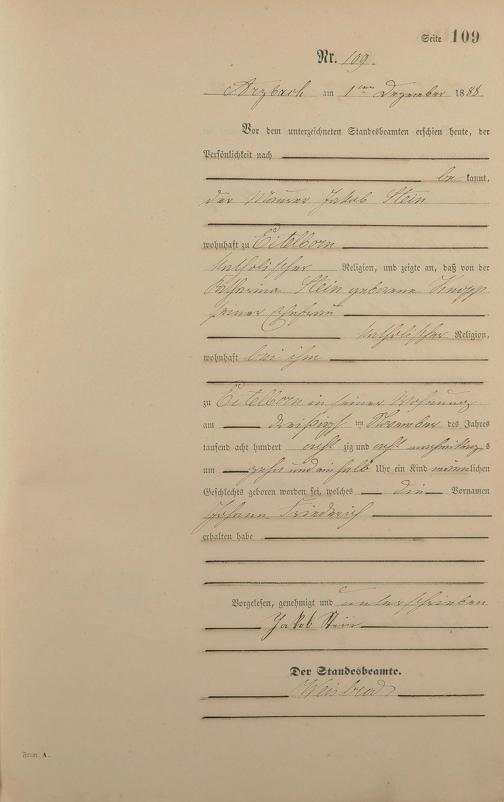 Seite 109
Nr. 109.
Arzbach am 1ten Dezember 1888
Vor dem unterzeichneten Standesbeamten erschien heute, der
Persönlichkeit nach
be kannt,
der Maurer Jakob Stein
wohnhaft zu Eitelborn
katholischer Religion, und zeigte an, daß von der
Katharina Stein geborene Knopp
seiner Ehefrau
katholischer Religion,
wohnhaft bei ihm
zu Eitelborn in seiner Wohnung
am dreißigsten November des Jahres
tausend acht hundert acht zig und acht nachmittags
um zehn und ein halb Uhr ein Kind männlichen
Geschlechts geboren worden sei, welches die Vornamen
Johann Friederich
erhalten habe
Vorgelesen, genehmigt und unterschrieben
Jakob Stein
Der Standesbeamte.
Weisbrod
Form. A.